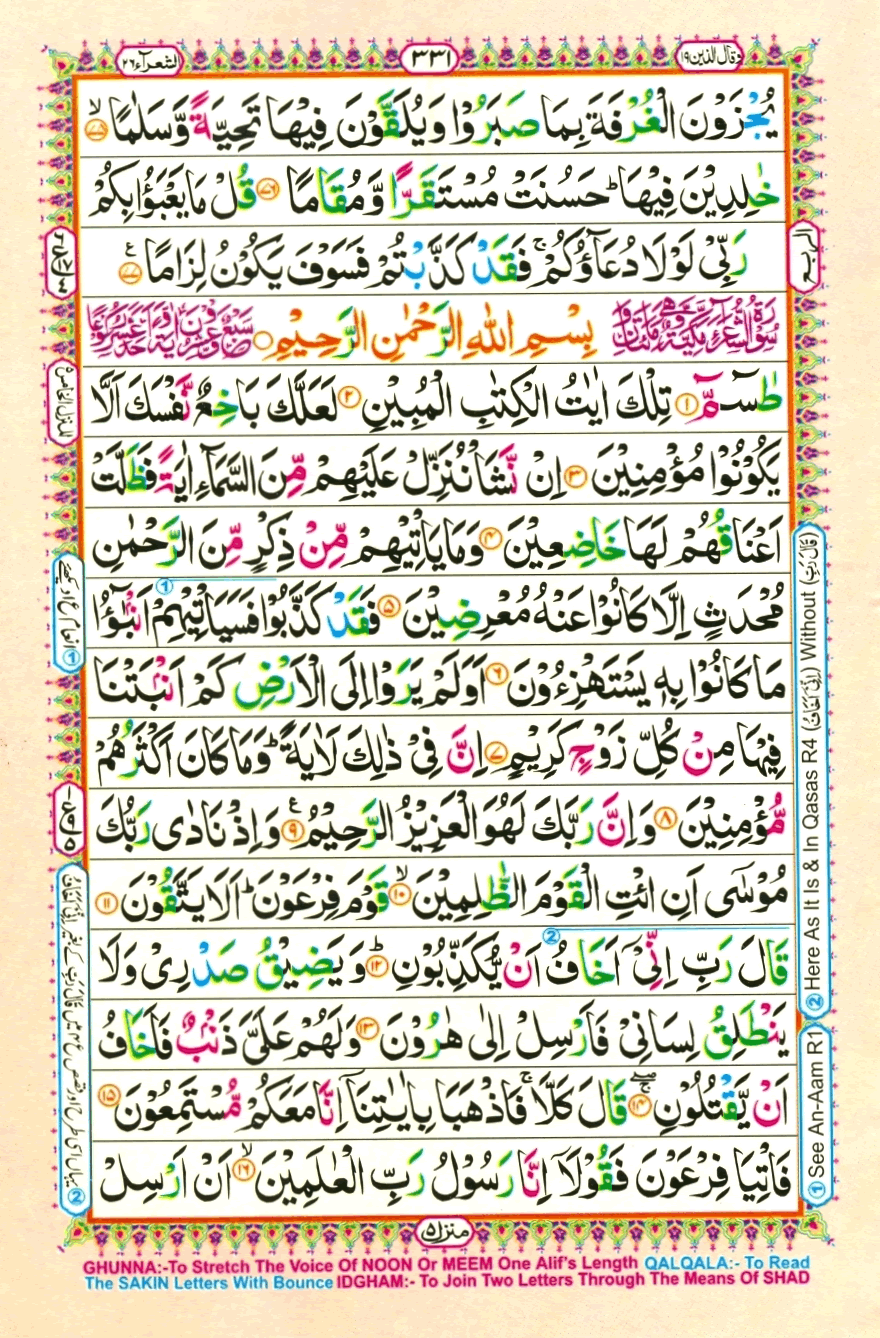 وقال الذين ١٩
٣٣١
الشعرآء ٢٦
يُجْزَوْنَ الْغُرْفَةَ بِمَا صَبَرُوْا وَيُلَقَّوْنَ فِيْهَا تَحِيَّةً وَّسَلٰمًا ۙ﴿۷۵﴾
خٰلِدِيْنَ فِيْهَا ؕ حَسُنَتْ مُسْتَقَرًّا وَّمُقَامًا ﴿۷۶﴾ قُلْ مَا يَعْبَؤُا بِكُمْ
رَبِّيْ لَوْ لَا دُعَآؤُكُمْ ۚ فَقَدْ كَذَّبْتُمْ فَسَوْفَ يَكُوْنُ لِزَامًا ﴿۷۷﴾ ع
بِسْمِ اللّٰهِ الرَّحْمٰنِ الرَّحِيْمِ
طٰسٓمّٓ ﴿۱﴾ تِلْكَ اٰيٰتُ الْكِتٰبِ الْمُبِيْنِ ﴿۲﴾ لَعَلَّكَ بَاخِعٌ نَّفْسَكَ اَلَّا
يَكُوْنُوْا مُؤْمِنِيْنَ ﴿۳﴾ اِنْ نَّشَاْ نُنَزِّلْ عَلَيْهِمْ مِّنَ السَّمَآءِ اٰيَةً فَظَلَّتْ
اَعْنَاقُهُمْ لَهَا خَاضِعِيْنَ ﴿۴﴾ وَمَا يَاْتِيْهِمْ مِّنْ ذِكْرٍ مِّنَ الرَّحْمٰنِ
مُحْدَثٍ اِلَّا كَانُوْا عَنْهُ مُعْرِضِيْنَ ﴿۵﴾ فَقَدْ كَذَّبُوْا فَسَيَاْتِيْهِمْ اَنْۢبٰٓؤُا
مَا كَانُوْا بِهٖ يَسْتَهْزِءُوْنَ ﴿۶﴾ اَوَلَمْ يَرَوْا اِلَى الْاَرْضِ كَمْ اَنْۢبَتْنَا
فِيْهَا مِنْ كُلِّ زَوْجٍ كَرِيْمٍ ﴿۷﴾ اِنَّ فِيْ ذٰلِكَ لَاٰيَةً ؕ وَمَا كَانَ اَكْثَرُهُمْ
مُّؤْمِنِيْنَ ﴿۸﴾ وَاِنَّ رَبَّكَ لَهُوَ الْعَزِيْزُ الرَّحِيْمُ ﴿۹﴾ ع وَاِذْ نَادٰى رَبُّكَ
مُوْسٰٓى اَنِ ائْتِ الْقَوْمَ الظّٰلِمِيْنَ ۙ﴿۱۰﴾ قَوْمَ فِرْعَوْنَ ؕ اَلَا يَتَّقُوْنَ ﴿۱۱﴾
قَالَ رَبِّ اِنِّيْٓ اَخَافُ اَنْ يُّكَذِّبُوْنِ ؕ﴿۱۲﴾ وَيَضِيْقُ صَدْرِيْ وَلَا
يَنْطَلِقُ لِسَانِيْ فَاَرْسِلْ اِلٰى هٰرُوْنَ ﴿۱۳﴾ وَلَهُمْ عَلَيَّ ذَنْۢبٌ فَاَخَافُ
اَنْ يَّقْتُلُوْنِ ﴿۱۴﴾ قَالَ كَلَّا ۚ فَاذْهَبَا بِاٰيٰتِنَآ اِنَّا مَعَكُمْ مُّسْتَمِعُوْنَ ﴿۱۵﴾
فَاْتِيَا فِرْعَوْنَ فَقُوْلَآ اِنَّا رَسُوْلُ رَبِّ الْعٰلَمِيْنَ ۙ﴿۱۶﴾ اَنْ اَرْسِلْ
منزل ٥
② Here As It Is & In Qasas R4 (اِنِّيْٓ اَخَافُ) Without (قَالَ رَبِّ)
① See An-Aam R1
GHUNNA:-To Stretch The Voice Of NOON Or MEEM One Alif's Length QALQALA:- To Read
The SAKIN Letters With Bounce IDGHAM:- To Join Two Letters Through The Means Of SHAD